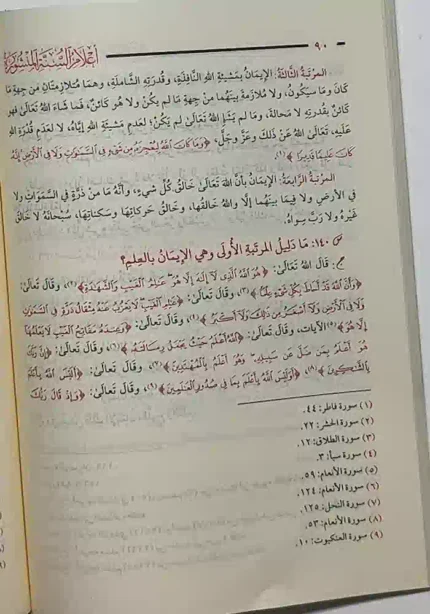 ٩٠ أعلام السنة المنشورة
المرتبة الثالثة: الإيمان بمشيئةِ اللهِ النافذةِ، وقُدرتِهِ الشاملةِ، وهما مُتلازمتانِ من جهةِ ما
كانَ وما سيكونُ، ولا مُلازمةَ بينهُما منْ جهةِ ما لم يكُنْ ولا هو كائنٌ، فما شاءَ اللهُ تعالىٰ فهو
كائنٌ بقُدرتِهِ لا محالةَ، وما لم يَشأِ اللهُ تعالىٰ لم يكُنْ؛ لعدمِ مشيئةِ اللهِ إيّاهُ، لا لعدمِ قُدرةِ اللهِ
عليهِ، تعالىٰ اللهُ عنْ ذلكَ وعزَّ وجلَّ، ﴿وَمَا كَانَ اللَّهُ لِيُعْجِزَهُ مِن شَيْءٍ فِي السَّمَٰوَٰتِ وَلَا فِي الْأَرْضِ إِنَّهُ
كَانَ عَلِيمًا قَدِيرًا﴾(١).
المرتبة الرابعة: الإيمانُ بأنَّ اللهَ تعالىٰ خالقُ كُلِّ شيءٍ، وأنَّهُ ما منْ ذرَّةٍ في السَّمَوَاتِ ولا
في الأرضِ ولا فيما بينَهُما إلَّا واللهُ خالقُها، وخالقُ حركاتِها وسكناتِها، سُبحانَهُ لا خالقَ
غيرُهُ ولا ربَّ سِواهُ.
س ١٤٠: ما دليلُ المرتبةِ الأُولَىٰ وهي الإيمانُ بالعلمِ؟
ج: قالَ اللهُ تعالىٰ: ﴿هُوَ اللَّهُ الَّذِي لَا إِلَٰهَ إِلَّا هُوَ عَٰلِمُ الْغَيْبِ وَالشَّهَٰدَةِ﴾(٢)، وقال تعالىٰ:
﴿وَأَنَّ اللَّهَ قَدْ أَحَاطَ بِكُلِّ شَيْءٍ عِلْمًا﴾(٣)، وقال تعالىٰ: ﴿عَٰلِمِ الْغَيْبِ لَا يَعْزُبُ عَنْهُ مِثْقَالُ ذَرَّةٍ فِي السَّمَٰوَٰتِ
وَلَا فِي الْأَرْضِ وَلَا أَصْغَرُ مِن ذَٰلِكَ وَلَا أَكْبَرُ﴾(٤)، وقال تعالىٰ: ﴿وَعِندَهُ مَفَاتِحُ الْغَيْبِ لَا يَعْلَمُهَا
إِلَّا هُوَ﴾(٥) الآيات، وقال تعالىٰ: ﴿اللَّهُ أَعْلَمُ حَيْثُ يَجْعَلُ رِسَالَتَهُ﴾(٦)، وقال تعالىٰ: ﴿إِنَّ رَبَّكَ
هُوَ أَعْلَمُ بِمَن ضَلَّ عَن سَبِيلِهِ وَهُوَ أَعْلَمُ بِالْمُهْتَدِينَ﴾(٧)، وقال تعالىٰ: ﴿أَلَيْسَ اللَّهُ بِأَعْلَمَ
بِالشَّٰكِرِينَ﴾(٨)، ﴿أَوَلَيْسَ اللَّهُ بِأَعْلَمَ بِمَا فِي صُدُورِ الْعَٰلَمِينَ﴾(٩)، وقال تعالىٰ: ﴿وَإِذْ قَالَ رَبُّكَ
(١) سورة فاطر: ٤٤.
(٢) سورة الحشر: ٢٢.
(٣) سورة الطلاق: ١٢.
(٤) سورة سبأ: ٣.
(٥) سورة الأنعام: ٥٩.
(٦) سورة الأنعام: ١٢٤.
(٧) سورة النحل: ١٢٥.
(٨) سورة الأنعام: ٥٣.
(٩) سورة العنكبوت: ١٠.